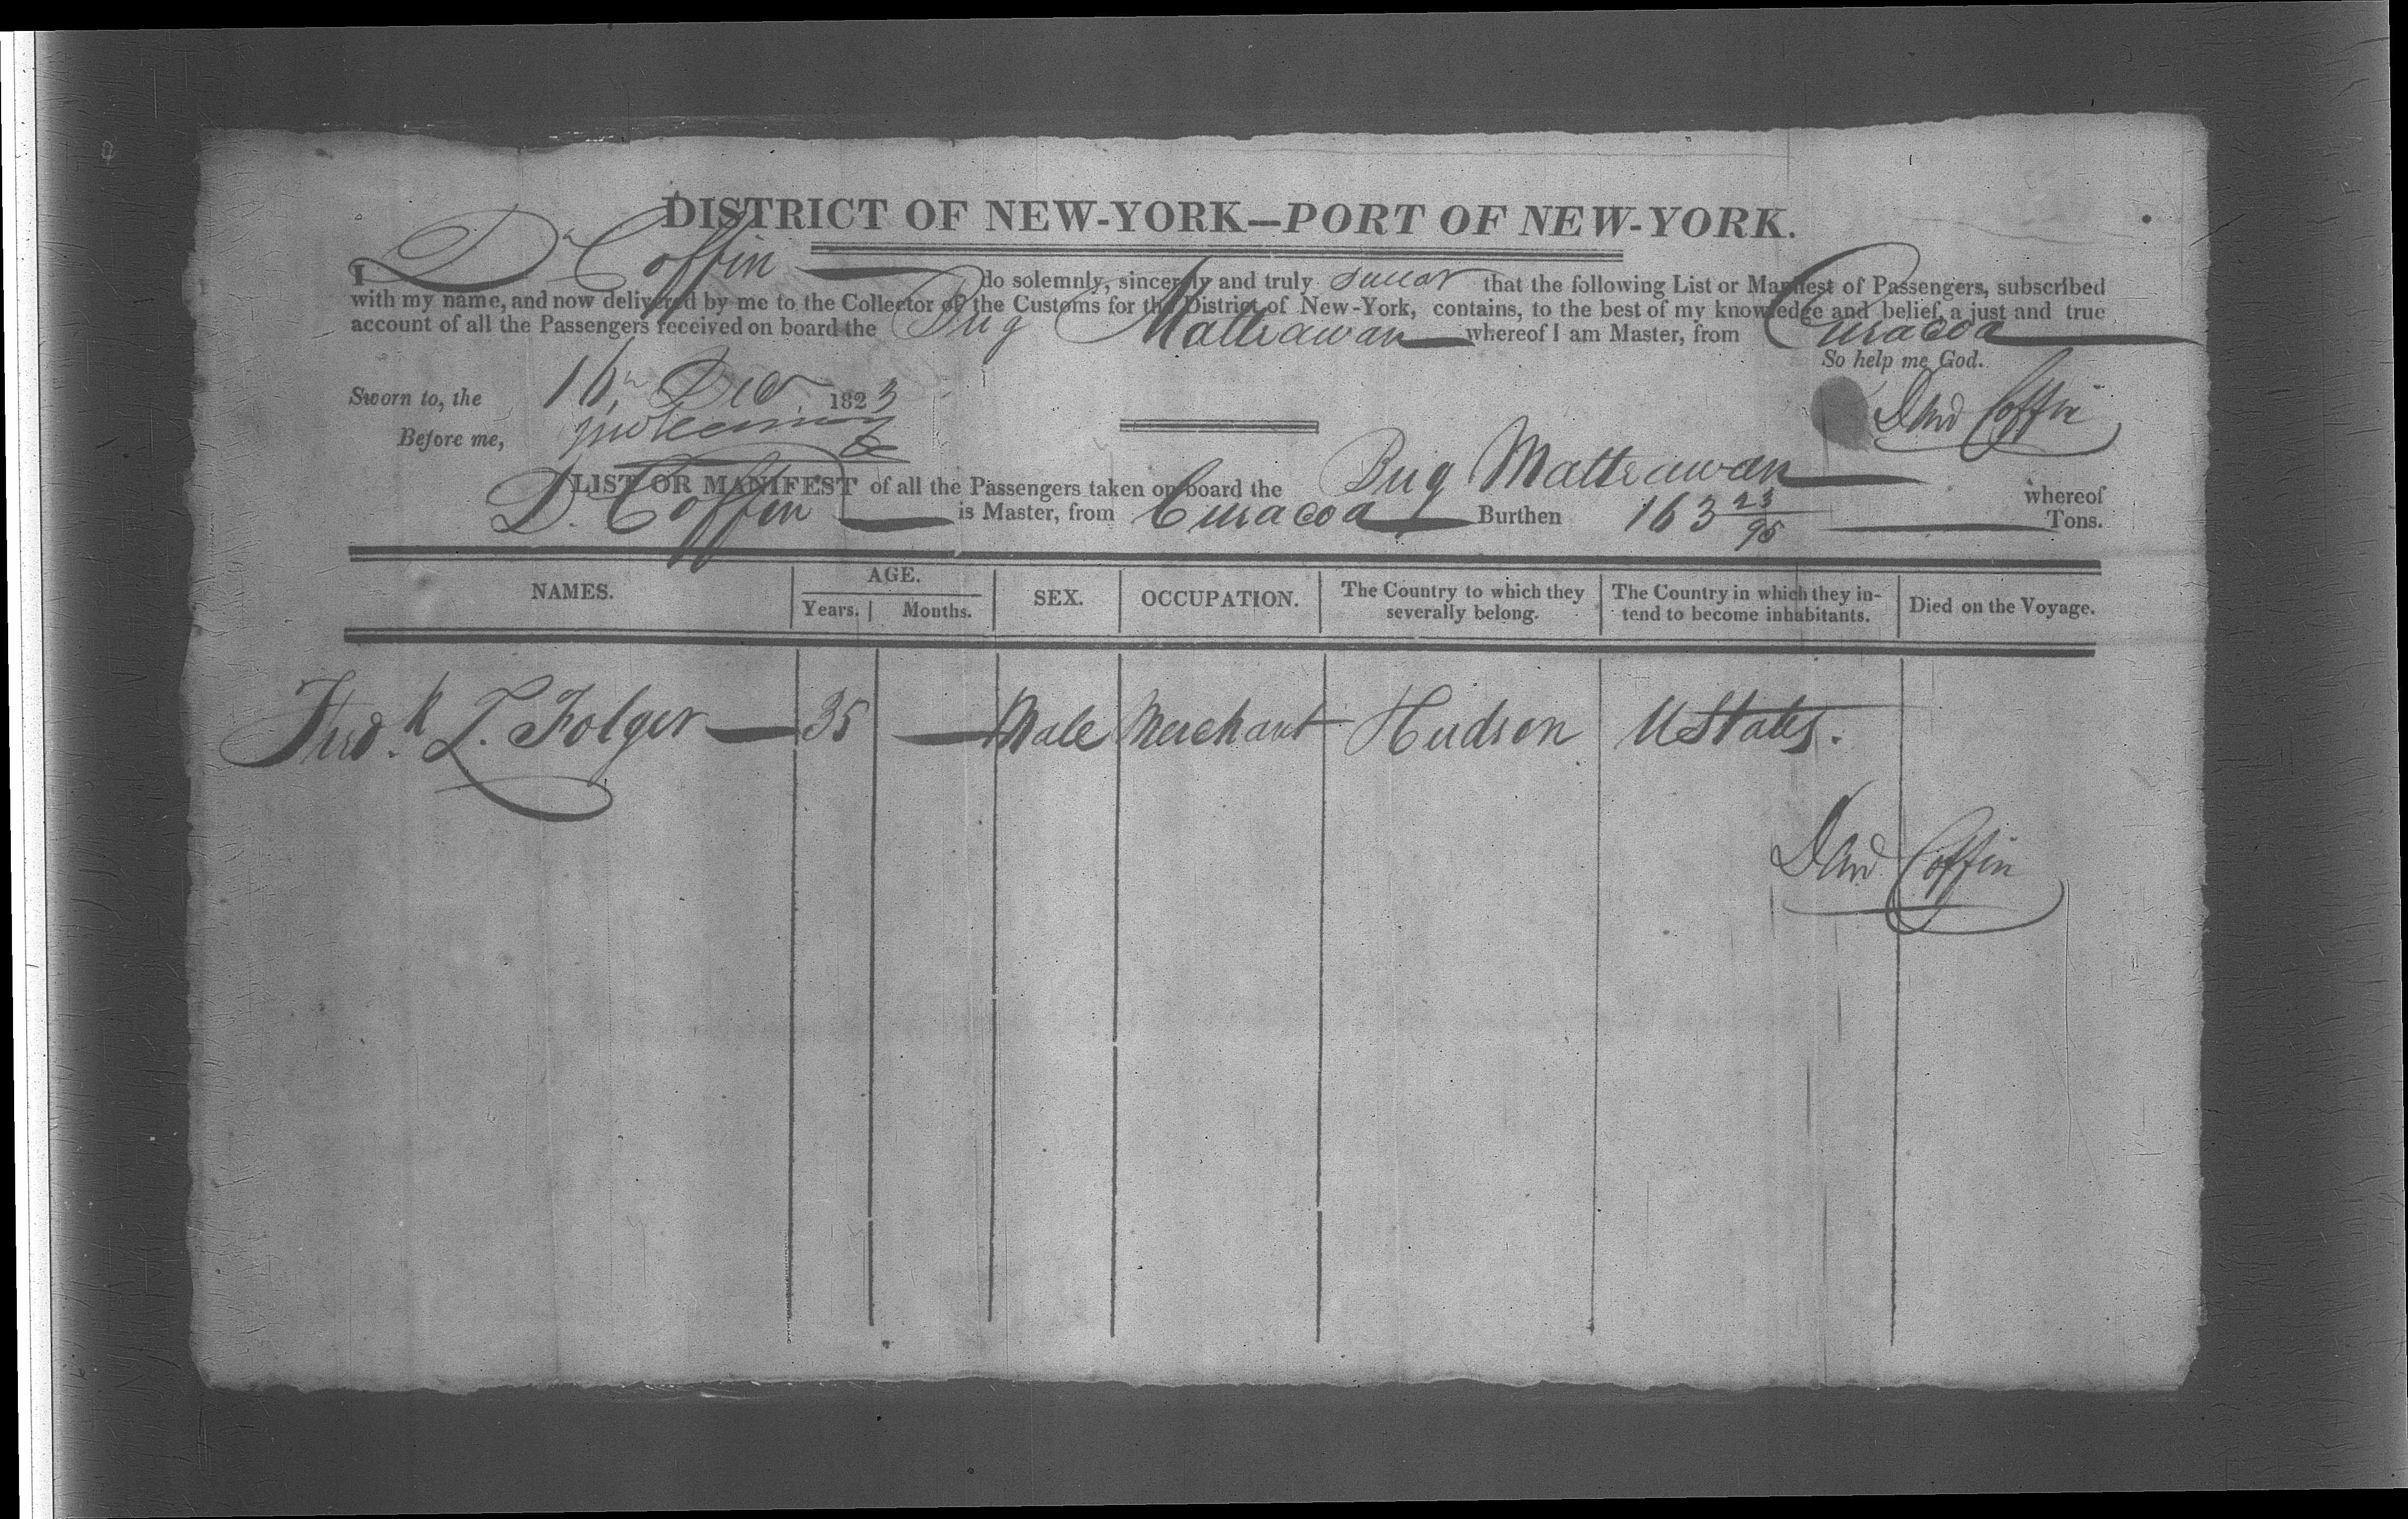 DISTRICT OF NEW-YORK—PORT OF NEW-YORK.
I D Coffin do solemnly, sincerely and truly swear that the following List or Manifest of Passengers, subscribed
with my name, and now delivered by me to the Collector of the Customs for the District of New-York, contains, to the best of my knowledge and belief, a just and true
account of all the Passengers received on board the Brig Matteawan whereof I am Master, from Curacoa
So help me God.
Sworn to, the 16th Dec 1823
Davd Coffin
Before me,
LIST OR MANIFEST of all the Passengers taken on board the Brig Matteawan whereof
D. Coffin is Master, from Curacoa Burthen 163 23/95 Tons.
NAMES. AGE. Years. Months. SEX. OCCUPATION. The Country to which they severally belong. The Country in which they intend to become inhabitants. Died on the Voyage.
Fred.k L. Folger 35 — Male Merchant Hudson U States.
Davd Coffin